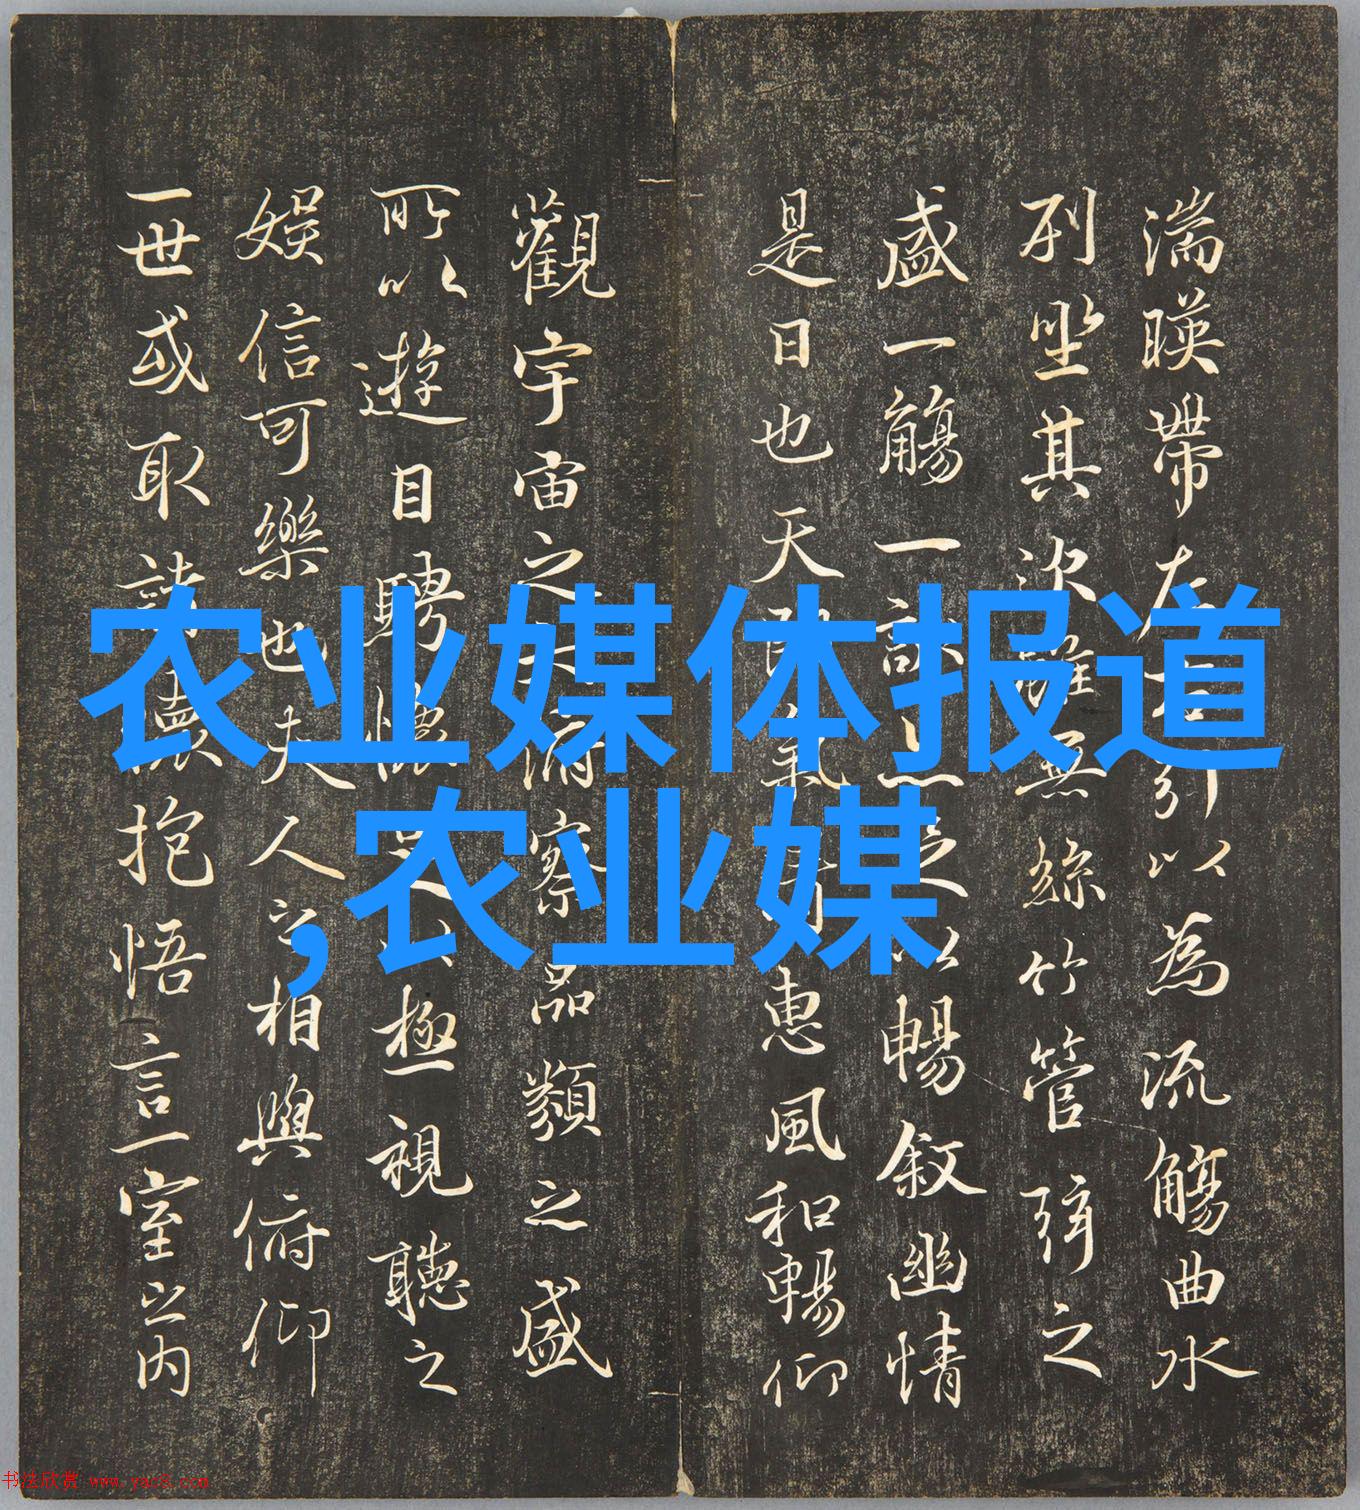 农业媒体报道
,农业媒
湍暎帶左右引以為流觴曲水
列坐其次雖無絲竹管弦之
盛一觴一詠足以暢敘幽情
是日也天朗氣清惠風和暢仰
觀宇宙之大俯察品類之盛
所以遊目騁懷足以極視聽之
娛信可樂也夫人之相與俯仰
一世或取諸懷抱悟言一室之内
书法欣赏 www.yac8.com